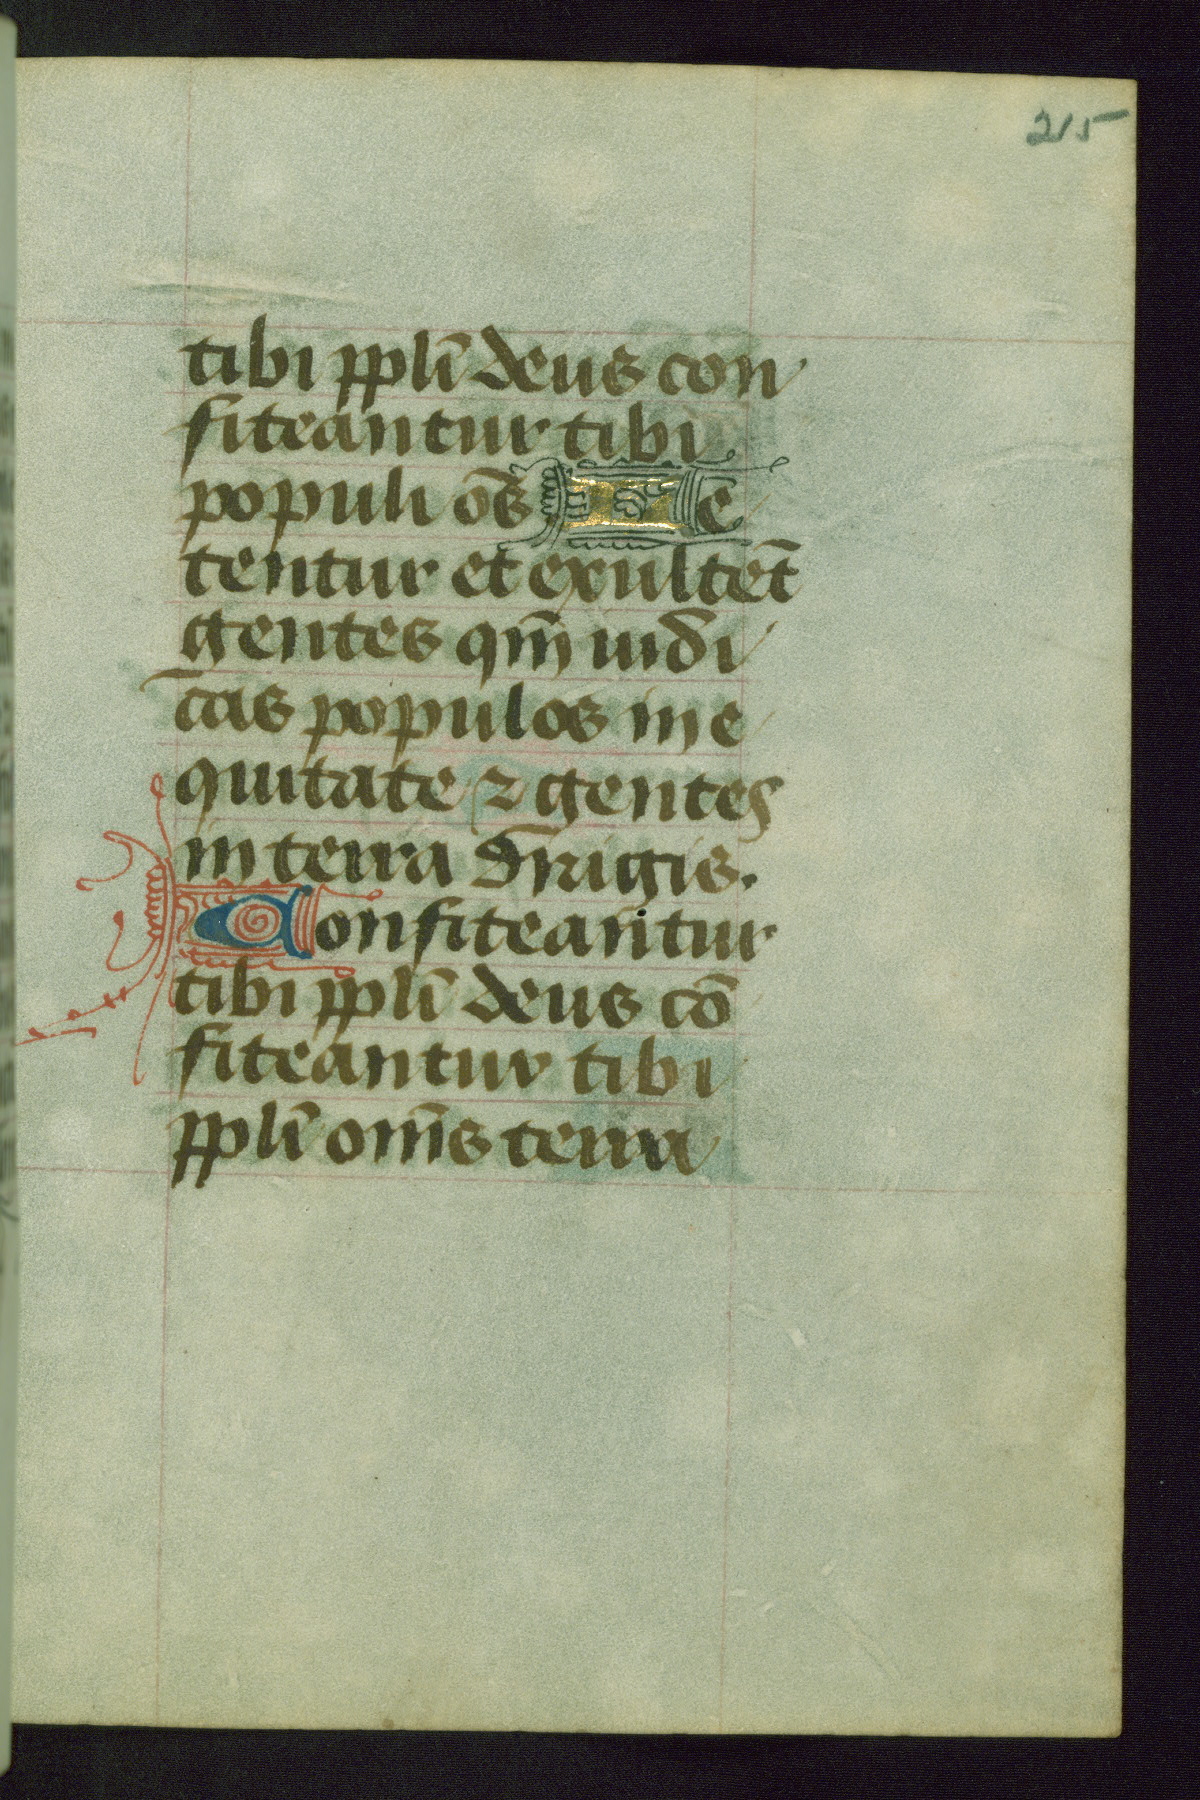 215
tibi ppl̄i deus con
fiteantur tibi
populi om̄s Le
tentur et exultēt
gentes qm̄ iudi
cas populos in e
quitate ⁊ gentes
in terra dirigis.
Confiteantur
tibi ppl̄i deus cō
fiteantur tibi
ppl̄i om̄s terra